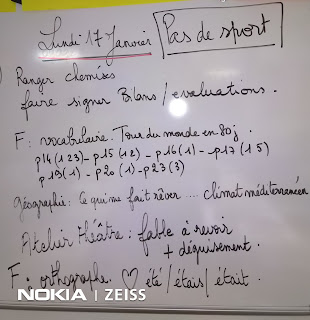 Lundi 17 Janvier Pas de sport
Ranger chemises
faire signer Bilans / evaluations.
F: vocabulaire. Tour du monde en 80j.
p14 (1 2 3) - p15 (1 2) - p16 (1) - p17 (1 5)
p19 (1) - p20 (1) - p23 (3)
géographie: Ce qui me fait rêver ... climat méditerranéen
Atelier théâtre: fable à revoir
+ déguisement.
F: orthographe. ♡ été / étais / était.
NOKIA | ZEISS